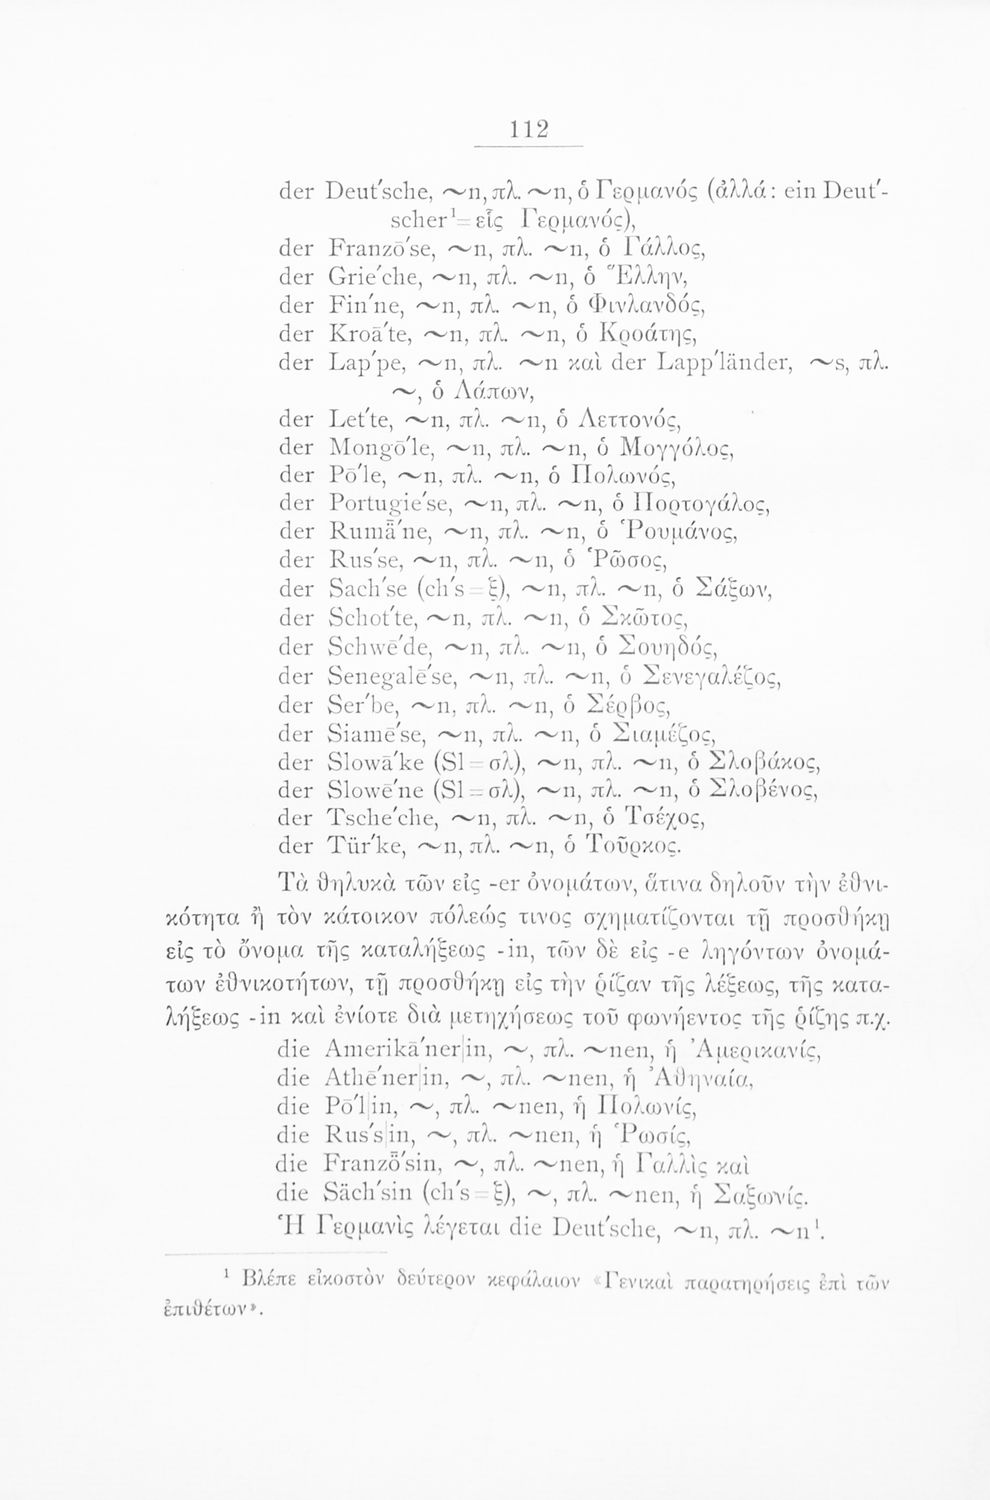 112
der Deut'sche, ~n, πλ. ~n, ὁ Γερμανός (ἀλλά: ein Deut'-
scher¹ = εἷς Γερμανός),
der Franzō'se, ~n, πλ. ~n, ὁ Γάλλος,
der Grie'che, ~n, πλ. ~n, ὁ Ἕλλην,
der Fin'ne, ~n, πλ. ~n, ὁ Φινλανδός,
der Kroā'te, ~n, πλ. ~n, ὁ Κροάτης,
der Lap'pe, ~n, πλ. ~n καὶ der Lapp'länder, ~s, πλ.
~, ὁ Λάπων,
der Let'te, ~n, πλ. ~n, ὁ Λεττονός,
der Mongō'le, ~n, πλ. ~n, ὁ Μογγόλος,
der Pō'le, ~n, πλ. ~n, ὁ Πολωνός,
der Portugie'se, ~n, πλ. ~n, ὁ Πορτογάλος,
der Rumǟ'ne, ~n, πλ. ~n, ὁ Ῥουμάνος,
der Rus'se, ~n, πλ. ~n, ὁ Ῥῶσος,
der Sach'se (ch's = ξ), ~n, πλ. ~n, ὁ Σάξων,
der Schot'te, ~n, πλ. ~n, ὁ Σκῶτος,
der Schwē'de, ~n, πλ. ~n, ὁ Σουηδός,
der Senegalē'se, ~n, πλ. ~n, ὁ Σενεγαλέζος,
der Ser'be, ~n, πλ. ~n, ὁ Σέρβος,
der Siamē'se, ~n, πλ. ~n, ὁ Σιαμέζος,
der Slowā'ke (Sl = σλ), ~n, πλ. ~n, ὁ Σλοβάκος,
der Slowē'ne (Sl = σλ), ~n, πλ. ~n, ὁ Σλοβένος,
der Tsche'che, ~n, πλ. ~n, ὁ Τσέχος,
der Tür'ke, ~n, πλ. ~n, ὁ Τοῦρκος.
Τὰ θηλυκὰ τῶν εἰς -er ὀνομάτων, ἅτινα δηλοῦν τὴν ἐθνι-
κότητα ἢ τὸν κάτοικον πόλεώς τινος σχηματίζονται τῇ προσθήκῃ
εἰς τὸ ὄνομα τῆς καταλήξεως -in, τῶν δὲ εἰς -e ληγόντων ὀνομά-
των ἐθνικοτήτων, τῇ προσθήκῃ εἰς τὴν ῥίζαν τῆς λέξεως, τῆς κατα-
λήξεως -in καὶ ἐνίοτε διὰ μετηχήσεως τοῦ φωνήεντος τῆς ῥίζης π.χ.
die Amerikā'ner|in, ~, πλ. ~nen, ἡ Ἀμερικανίς,
die Athē'ner|in, ~, πλ. ~nen, ἡ Ἀθηναία,
die Pō'l|in, ~, πλ. ~nen, ἡ Πολωνίς,
die Rus's|in, ~, πλ. ~nen, ἡ Ῥωσίς,
die Franzȫ'sin, ~, πλ. ~nen, ἡ Γαλλὶς καὶ
die Säch'sin (ch's = ξ), ~, πλ. ~nen, ἡ Σαξωνίς.
Ἡ Γερμανὶς λέγεται die Deut'sche, ~n, πλ. ~n¹.
¹ Βλέπε εἰκοστὸν δεύτερον κεφάλαιον «Γενικαὶ παρατηρήσεις ἐπὶ τῶν
ἐπιθέτων».